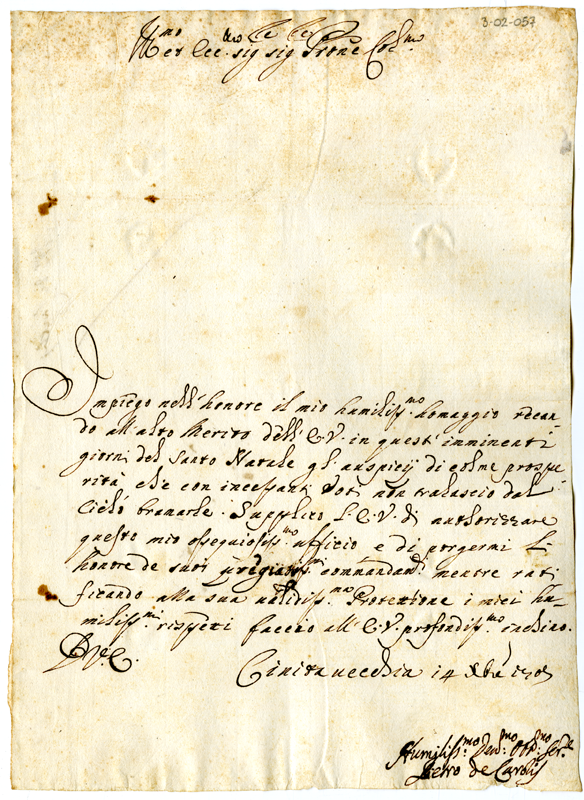 3-02-057
Ill.mo et Ecc.mo sig sig Prone Col.mo
Impiego nell'honore il mio humiliss.mo homaggio recan
do all'alto Merito dell'E.V. in questi imminenti
giorni del Santo Natale gl'auspicij di colme prospe
rità che con incessanti Voti non tralascio dal
Cielo bramarle. Supplico L'E.V. di authorizzare
questo mio ossequiosiss.mo ufficio e di porgermi L'
honore de suoi pregiatiss.mi commandi mentre rati
ficando alla sua validiss.ma Protettione i miei hu
miliss.mi rispetti faccio all'E.V. profondiss.mo inchino.
D.V.E.
Civitavecchia 14 Xbre
Humiliss.mo Deu.mo Obb.mo Ser.re
Pietro de Carolis